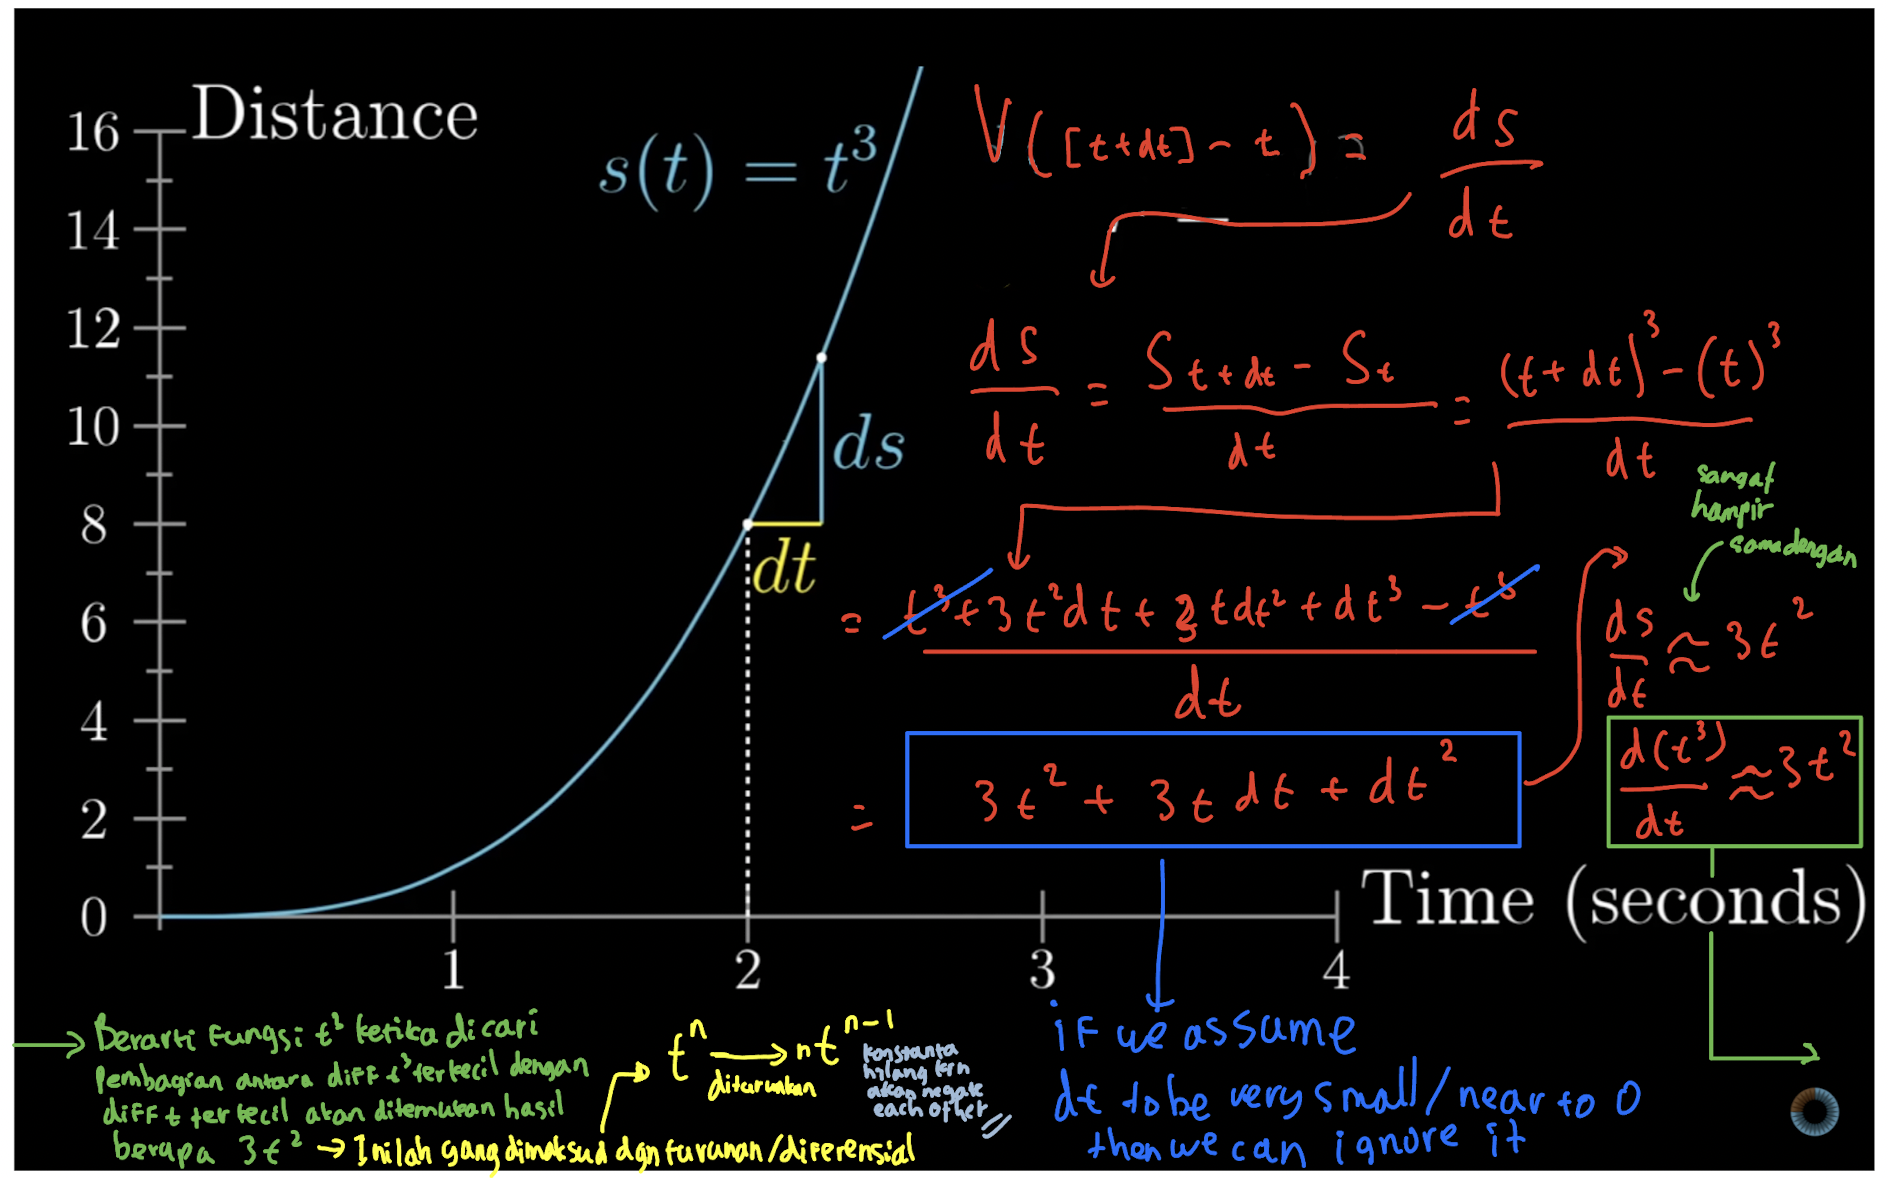 Distance
s(t) = t³
16
14
12
10
8
6
4
2
0
1
2
3
4
Time (seconds)
ds
dt
V([t+dt] - t) = ds/dt
ds/dt = (S_{t+dt} - S_t)/dt = ((t+dt)³ - (t)³)/dt
= (t³ + 3t²dt + 3tdt² + dt³ - t³)/dt
= 3t² + 3t dt + dt²
sangat
hampir
samadengan
ds/dt ≈ 3t²
d(t³)/dt ≈ 3t²
if we assume
dt to be very small/near to 0
then we can ignore it
Berarti fungsi t³ ketika dicari
pembagian antara diff t³ terkecil dengan
diff t terkecil akan ditemukan hasil
berupa 3t² → Inilah yang dimaksud dgn turunan/diferensial
tⁿ → nt^{n-1}
diturunkan
konstanta
hilang krn
akan negate
each other